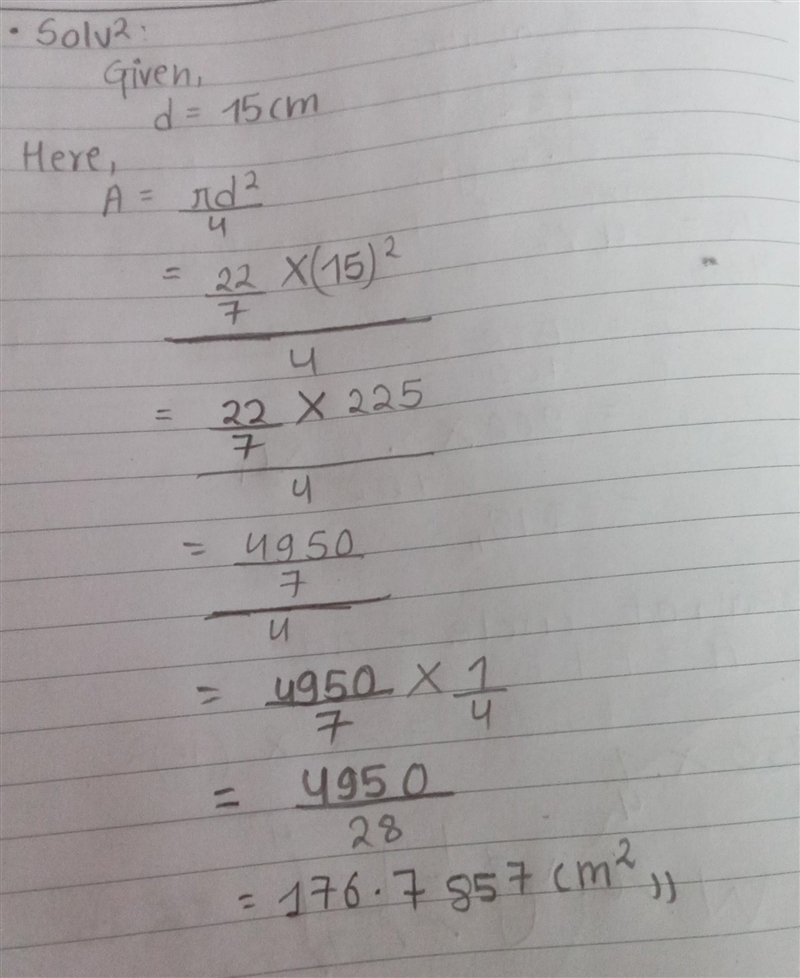 • Solv²:
Given,
d = 15cm
Here,
A = πd²/4
= 22/7 ×(15)²/4
= 22/7 × 225/4
= 4950/7/4
= 4950/7 × 1/4
= 4950/28
= 176.7857 cm²,,